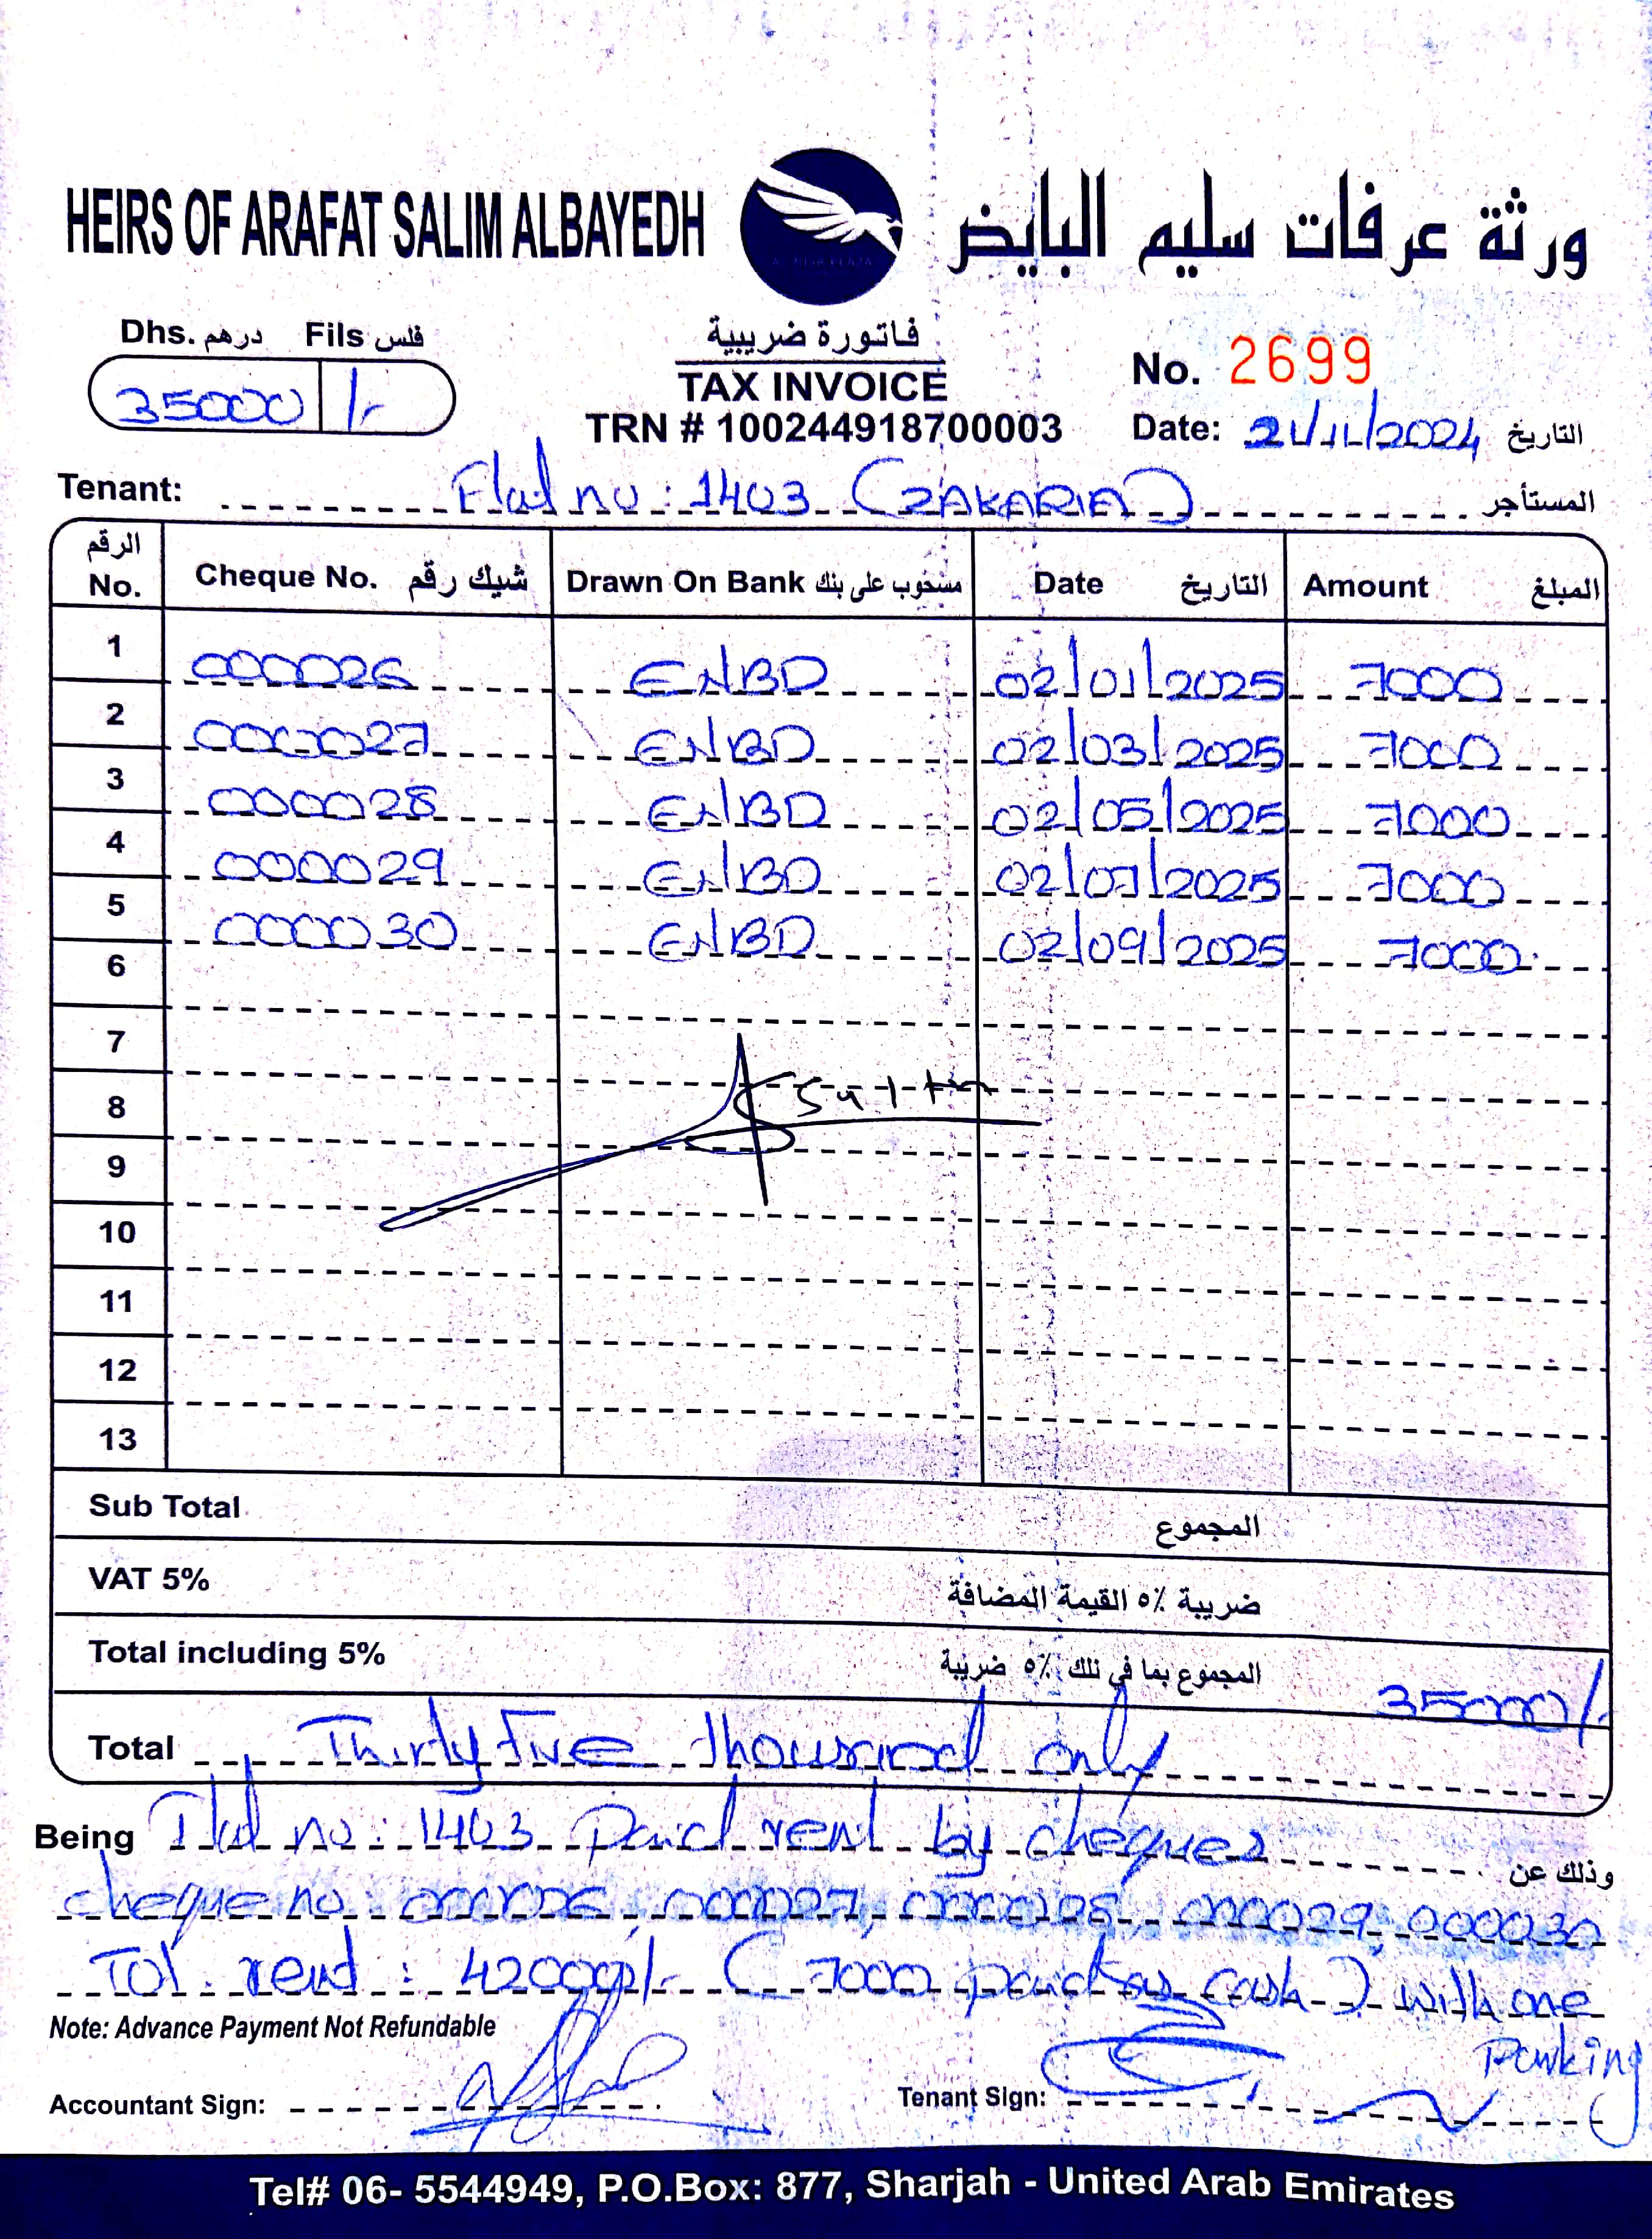 HEIRS OF ARAFAT SALIM ALBAYEDH ورثة عرفات سليم البايض
Dhs. درهم Fils فلس
35000 /-
فاتورة ضريبية
TAX INVOICE
TRN # 100244918700003
No. 2699
Date: 21/11/2024 التاريخ
Tenant: Flat no : 1403 (ZAKARIA) المستأجر
الرقم No. Cheque No. شيك رقم Drawn On Bank مسحوب على بنك Date التاريخ Amount المبلغ
1 000026 ENBD 02/01/2025 7000
2 000027 ENBD 02/03/2025 7000
3 000028 ENBD 02/05/2025 7000
4 000029 ENBD 02/07/2025 7000
5 000030 ENBD 02/09/2025 7000
6
7
8
9
10
11
12
13
Sub Total المجموع
VAT 5% ضريبة ٥٪ القيمة المضافة
Total including 5% المجموع بما في ذلك ٥٪ ضريبة 35000/-
Total Thirty Five thousand only
Being Flat no : 1403 Paid rent by cheques وذلك عن
cheque no : 000026, 000027, 000028, 000029, 000030
Tot. rent : 42000/- (7000 paid as cash) with one
Parking
Note: Advance Payment Not Refundable
Accountant Sign: Tenant Sign:
Tel# 06- 5544949, P.O.Box: 877, Sharjah - United Arab Emirates